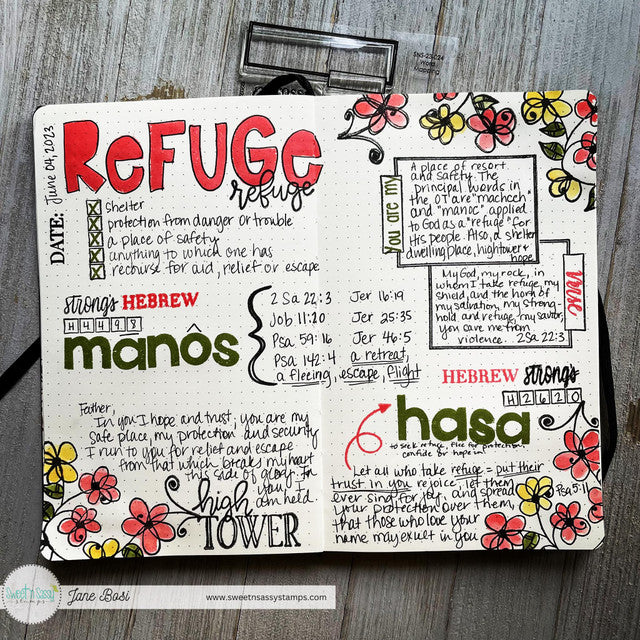 SNS-23C24
Word
Mapping
DATE: June 04, 2023
ReFUGe
refuge
shelter
protection from danger or trouble
a place of safety
anything to which one has
recourse for aid, relief or escape
strong's HEBREW
H4498
manôs
2 Sa 22:3
Job 11:20
Psa 59:16
Psa 142:4
Jer 16:19
Jer 25:35
Jer 46:5
a retreat,
a fleeing, escape, flight
Father,
In you I hope and trust, you are my
safe place, my protection and security
I run to you for relief and escape
from that which breaks my heart
this side of glory. In
you, I
am held.
high
TOWER
You are my
A place of resort
and safety. The
principal words in
the OT are "machceh"
and "manoc" applied
to God as a "refuge" for
His people. Also, a shelter
dwelling place, hightower &
hope
verse
My God, my rock, in
whom I take refuge, my
shield, and the horn of
my salvation, my strong-
hold and refuge, my savior,
you save me from
violence. 2Sa 22:3
HEBREW strong's
H2620
hasa
to seek refuge, flee for protection,
confide or hope in
Let all who take refuge = put their
trust in you rejoice, let them
ever sing for joy, and spread Psa 5:11
your protection over them,
that those who love your
name may exult in you
Sweet n Sassy
stamps
Jane Bosi
www.sweetnsassystamps.com